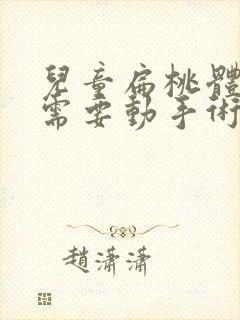 兒童扁桃體
需要動手術
趙瀟瀟